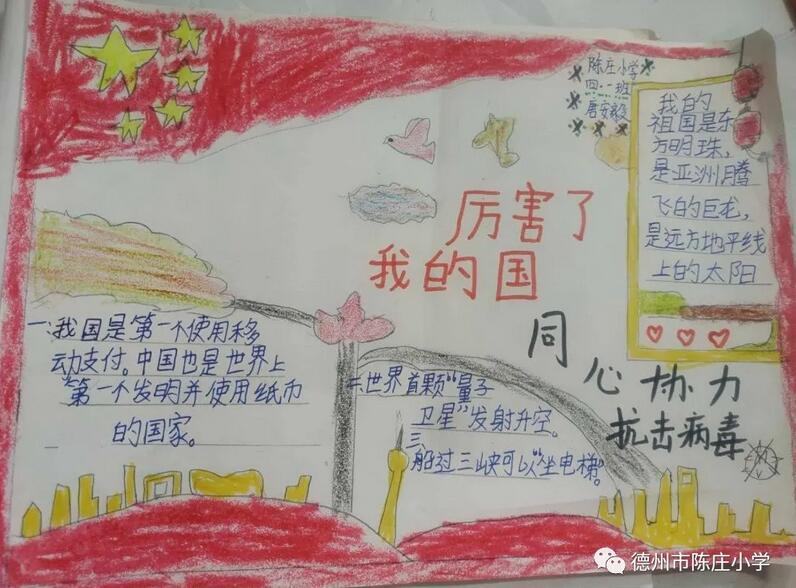 陈庄小学
四·一班
厉害了
我的国
我的
祖国是东
方明珠，
是亚洲腾
飞的巨龙，
是远方地平线
上的太阳
一:我国是第一个使用移
动支付。中国也是世界上
第一个发明并使用纸币
的国家。
二世界首颗“量子
卫星”发射升空。
三
船过三峡可以“坐电梯”。
同心协力
抗击病毒
德州市陈庄小学